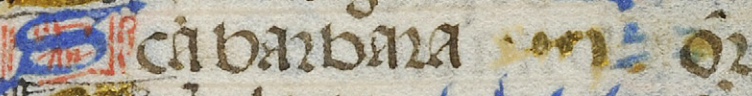 Scā barbara or̄